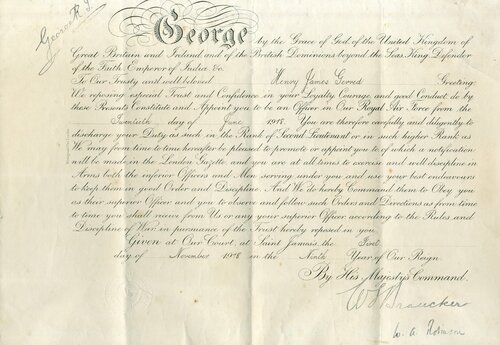 George R.I.
George by the Grace of God, of the United Kingdom of
Great Britain and Ireland and of the British Dominions beyond the Seas, King, Defender
of the Faith, Emperor of India &c.
To Our Trusty and well beloved Henry James Greeting:
We reposing especial Trust and Confidence in your Loyalty, Courage, and good Conduct, do by
these Presents Constitute and Appoint you to be an Officer in Our Royal Air Force from the
Twentieth day of June 1918. You are therefore carefully and diligently to
discharge your Duty as such in the Rank of Second Lieutenant or in such higher Rank as
We may from time to time hereafter be pleased to promote or appoint you to of which a notification
will be made in the London Gazette, and you are at all times to exercise and well discipline in
Arms both the inferior Officers and Men serving under you and use your best endeavours
to keep them in good Order and Discipline. And We do hereby Command them to Obey you
as their superior Officer and you to observe and follow such Orders and Directions as from time
to time you shall receive from Us or any your superior Officer according to the Rules and
Discipline of War in pursuance of the Trust hereby reposed in you.
Given at Our Court, at Saint James's, the First
day of November 1918 in the Ninth Year of Our Reign
By His Majesty's Command.
W. A. Robinson